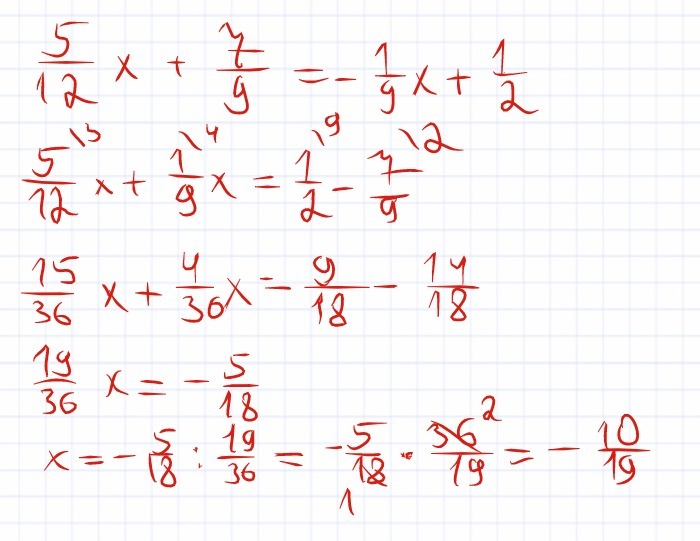 5/12 x + 7/9 = - 1/9 x + 1/2
5\3/12 x + 1\4/9 x = 1\9/2 - 7\2/9
15/36 x + 4/36 x = 9/18 - 14/18
19/36 x = - 5/18
x = - 5/18 : 19/36 = - 5/18 1 · 36 2/19 = - 10/19